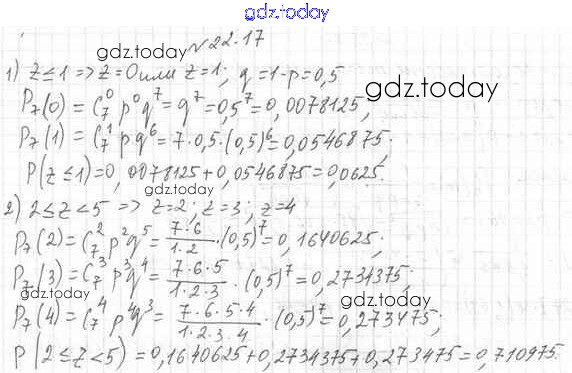 gdz.today
gdz.today №22.17
1) z≤1 => z=0 или z=1; q=1-p=0,5
gdz.today
P₇(0)=C₇⁰p⁰q⁷=q⁷=0,5⁷=0,0078125,
P₇(1)=C₇¹pq⁶=7·0,5·(0,5)⁶=0,0546875;
P(z≤1)=0,0078125+0,0546875=0,0625.
gdz.today
2) 2≤z<5 => z=2; z=3; z=4
P₇(2)=C₇²p²q⁵=7·6/1·2·(0,5)⁷=0,1640625;
P₇(3)=C₇³p³q⁴=7·6·5/1·2·3·(0,5)⁷=0,2734375;
gdz.today gdz.today
P₇(4)=C₇⁴p⁴q³=7·6·5·4/1·2·3·4·(0,5)⁷=0,273475;
P(2≤z<5)=0,1640625+0,2734375+0,273475=0,710975.